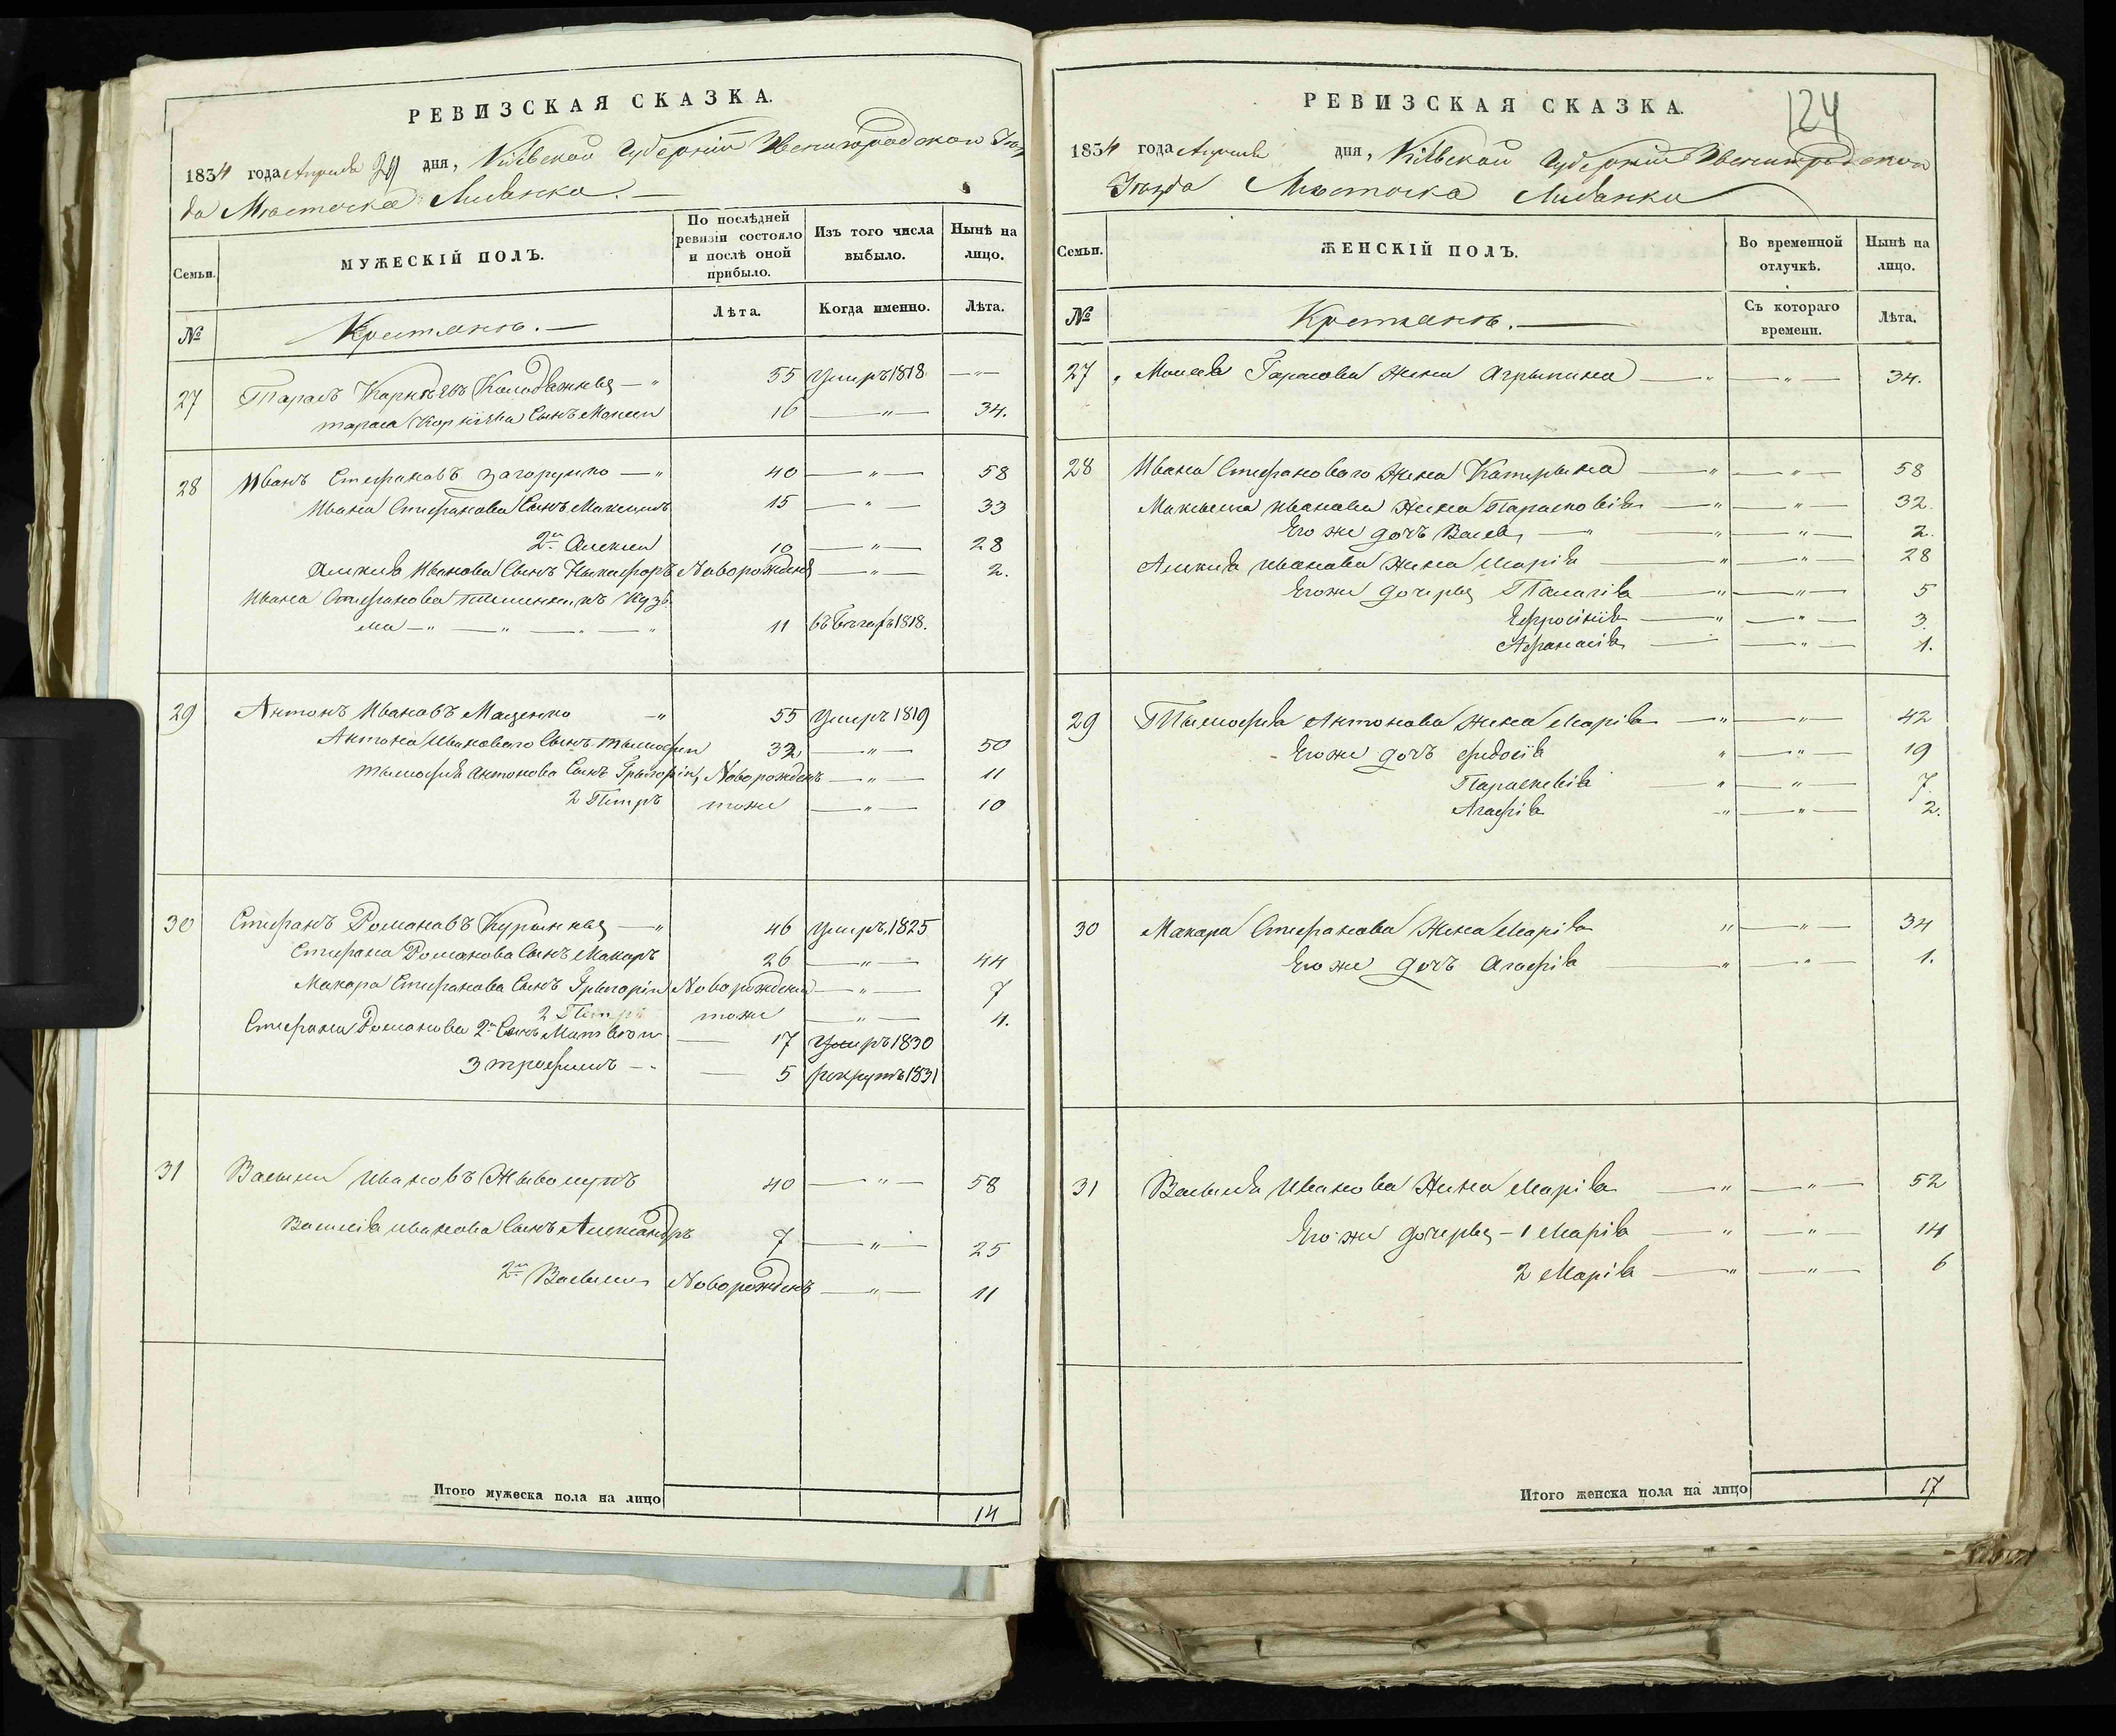 РЕВИЗСКАЯ СКАЗКА.
1834 года Апреля 29 дня, Кіевской Губерніи Звенигородскои Уѣз
да Мѣсточка Лисянка.
Семьи.
МУЖЕСКІЙ ПОЛЪ.
По послѣдней ревизіи состояло и послѣ оной прибыло.
Изъ того числа выбыло.
Нынѣ на лицо.
№
Крестьянъ.
Лѣта.
Когда именно.
Лѣта.
27 Тарасъ Карнѣевъ 55 Умиръ 1818
Тараса Корнѣева Сынъ Моисеи 16 — " — 34.
28 Иванъ Стефановъ Загорулко — " 40 — " — 58
Ивана Стефанова Сынъ Максимъ 15 — " — 33
2й Алексеи 10 — " — 28
Алексѣя Иванова Сынъ Никифоръ Новорожден — " — 2.
Ивана Стефанова племенникъ Кузь
ма — " — " — " — " 11 въ бегахъ 1818.
29 Антонъ Ивановъ Маценко — " 55 Умиръ 1819
Антона Иванового Сынъ Тымофеи 32 — " — 50
Тымофѣя Антонова Сынъ Грыгоріи, Новорожденъ — " — 11
2 Петръ тоже — " — 10
30 Стефанъ Романовъ — " 46 Умиръ 1825
Стефана Романова Сынъ Макаръ 26 — " — 44
Макара Стефанова Сынъ Грыгоріи Новорожденъ — " — 7
2 Петръ тоже — " — 4.
Стефана Романова 2й Сынъ Матвѣи — 17 Умиръ 1830
3 Трофимъ — " — 5 рекрутъ 1831
31 Василеи Ивановъ Жыволупъ 40 — " — 58
Василія Иванова Сынъ Александръ 7 — " — 25
2й Василеи Новорожденъ — " — 11
Итого мужеска пола на лицо
14
РЕВИЗСКАЯ СКАЗКА.
124
1834 года Апреля дня, Кіевскои Губерніи Звенигородскои
Уѣзда Мѣсточка Лисянки
Семьи.
ЖЕНСКІЙ ПОЛЪ.
Во временной отлучкѣ.
Нынѣ на лицо.
№
Крестьянъ.
Съ котораго времени.
Лѣта.
27 Моисея Тарасова Жена Агрыпина — " — " — 34.
28 Ивана Стефанового Жена Катерына — " — " — 58
Максыма Иванова Жена Парасковія — " — " — 32.
Его же дочъ — " — " — 2.
Алексѣя Иванова Жена Марія — " — " — 28
Его же дочеры Палагія — " — " — 5
Ефросинія — " — " — 3.
Афанасія — — " — 1.
29 Тымофѣя Антонова Жена Марія — " — " — 42
Его же дочъ Федосія " — " — 19
Параскевія — " — " — 7.
Агафія — " — " — 2.
30 Макара Стефанова Жена Марія " — " — 34
Его же дочъ Агафія — " — " — 1.
31 Василя Иванова Жена Марія — " — " — 52
Его же дочеры — 1 Марія — " — " — 14
2 Марія — " — " — 6
Итого женска пола на лицо
17